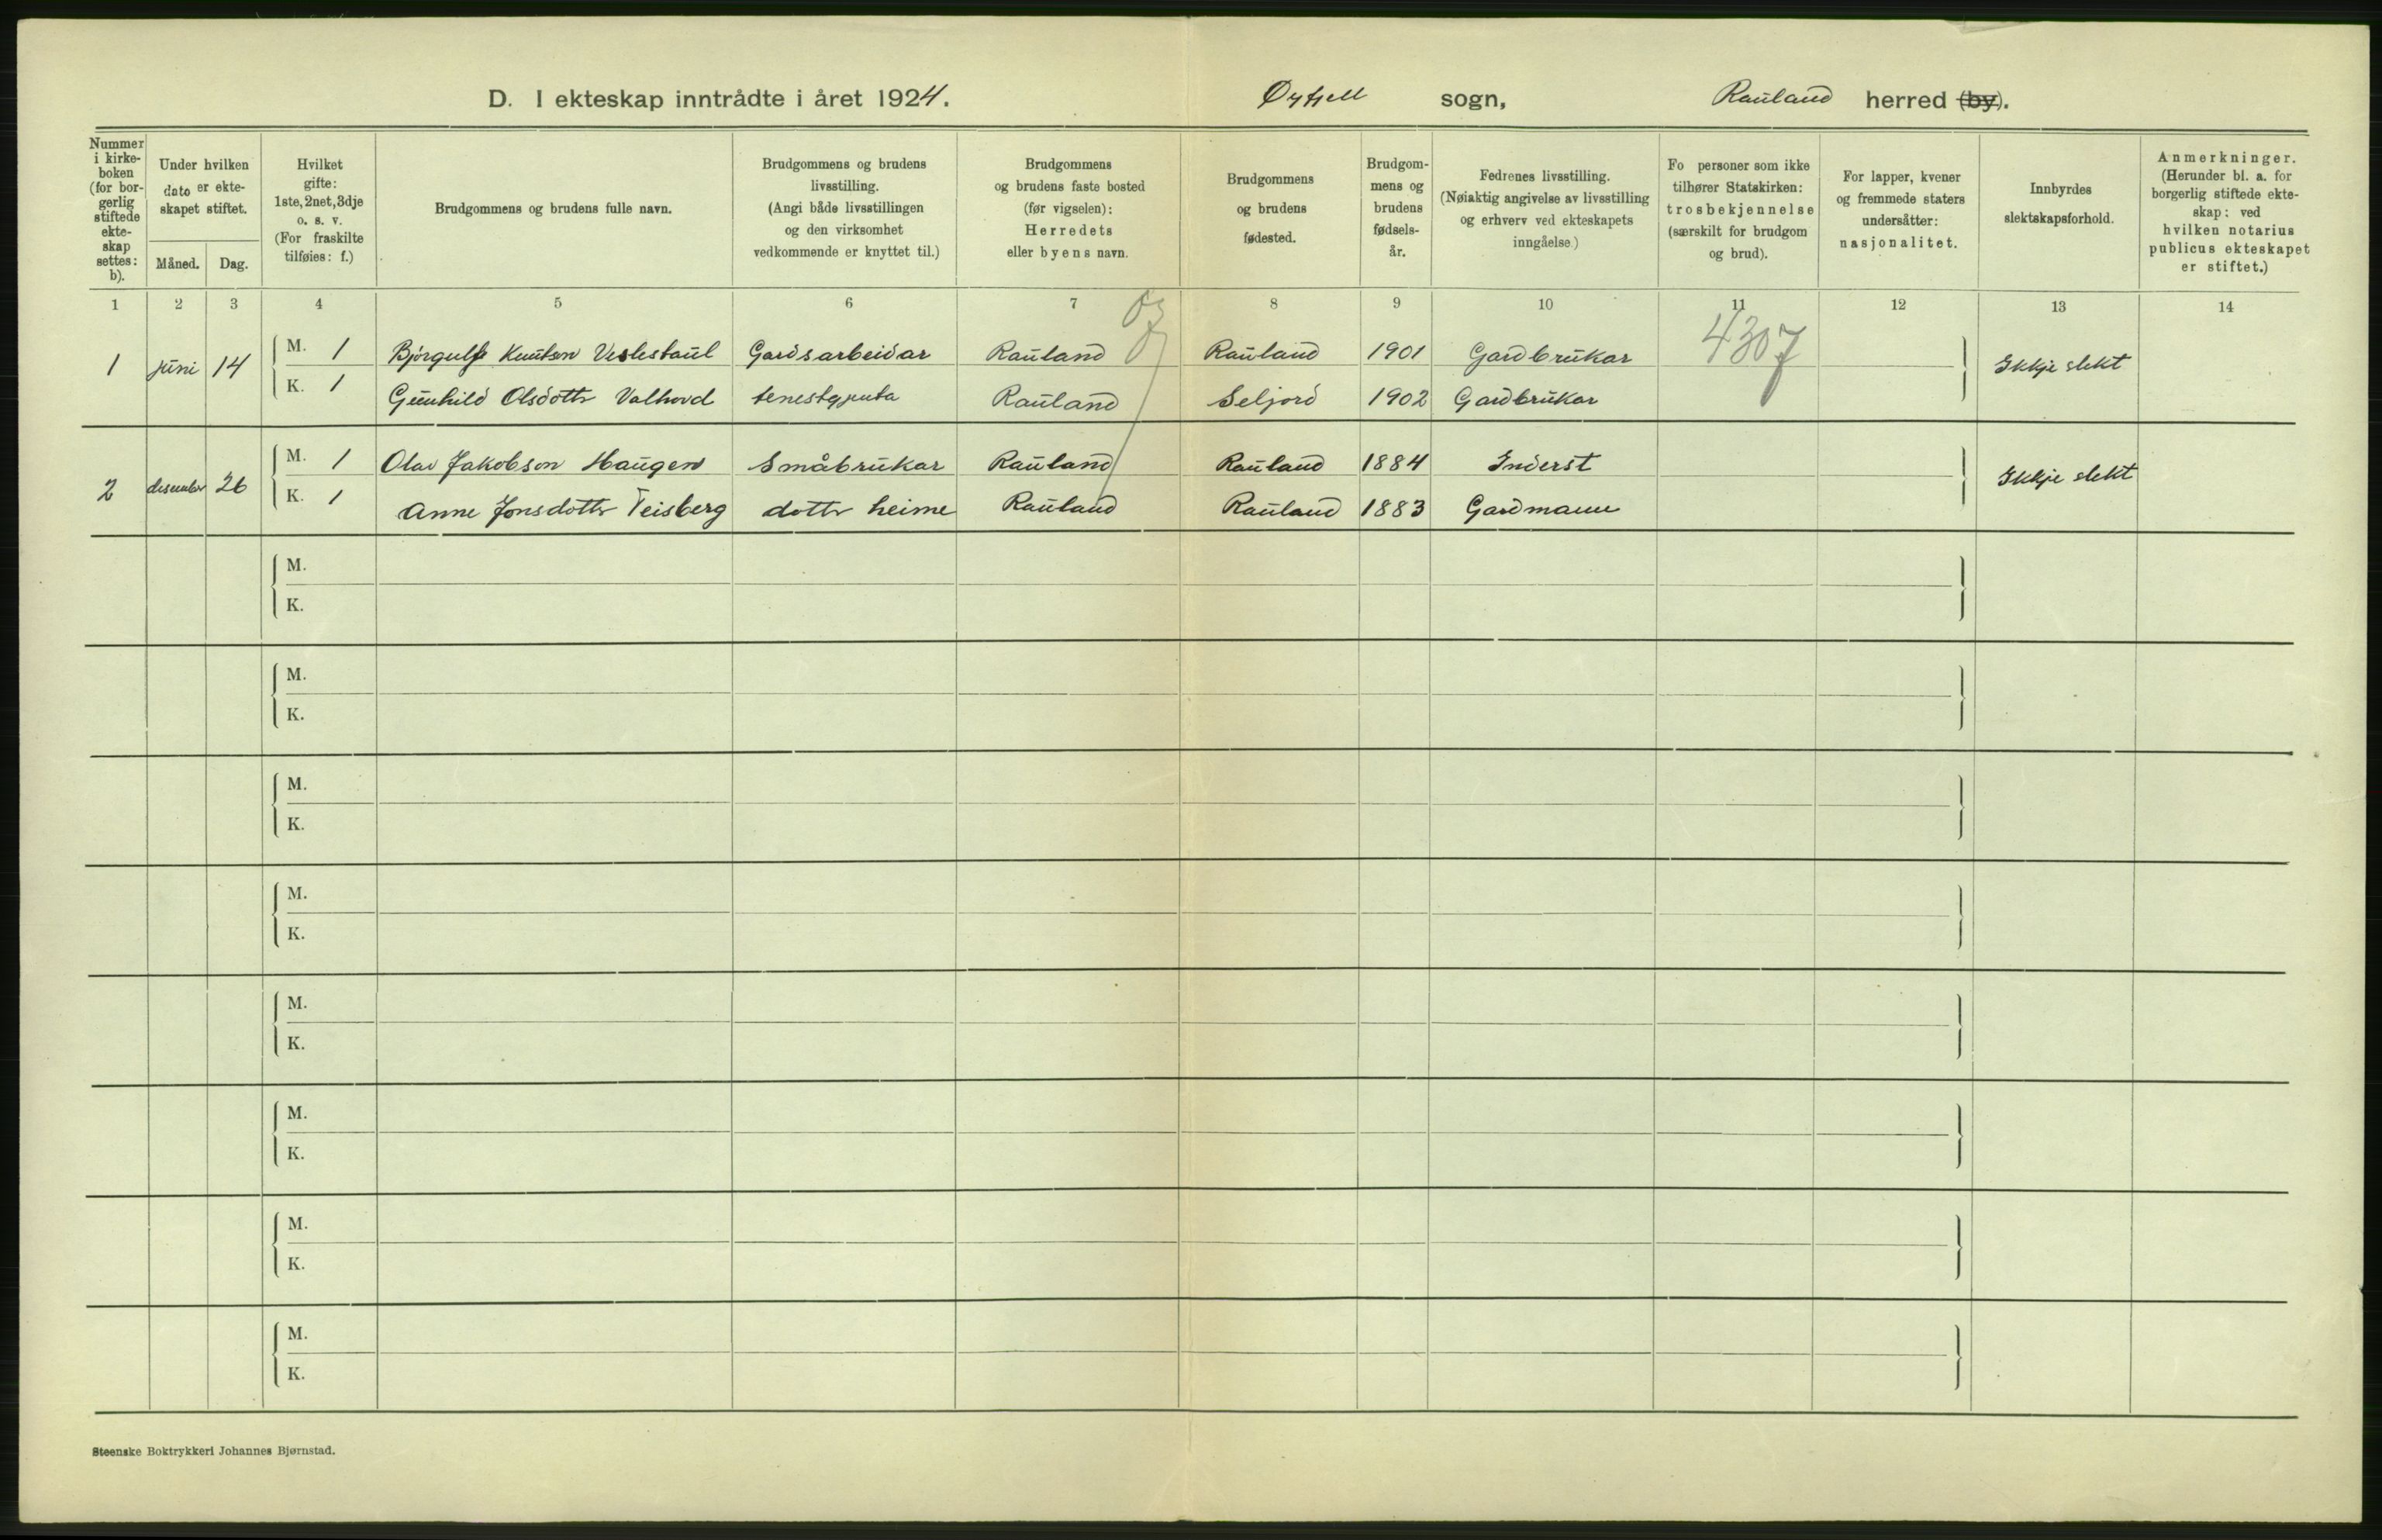 D. I ekteskap inntrådte i året 1924. Øyfjell sogn, Rauland herred (by).
Nummer i kirkeboken (for borgerlig stiftede ekteskap settes: b).
Under hvilken dato er ekteskapet stiftet.
Måned. Dag.
Hvilket gifte: 1ste, 2net, 3dje o. s. v. (For fraskilte tilføies: f.)
Brudgommens og brudens fulle navn.
Brudgommens og brudens livsstilling. (Angi både livsstillingen og den virksomhet vedkommende er knyttet til.)
Brudgommens og brudens faste bosted (før vigselen): Herredets eller byens navn.
Brudgommens og brudens fødested.
Brudgommens og brudens fødselsår.
Fedrenes livsstilling. (Nøiaktig angivelse av livsstilling og erhverv ved ekteskapets inngåelse.)
Fo personer som ikke tilhører Statskirken: trosbekjennelse (særskilt for brudgom og brud).
For lapper, kvener og fremmede staters undersåtter: nasjonalitet.
Innbyrdes slektskapsforhold.
Anmerkninger. (Herunder bl. a. for borgerlig stiftede ekteskap: ved hvilken notarius publicus ekteskapet er stiftet.)
1 2 3 4 5 6 7 8 9 10 11 12 13 14
4307
1 juni 14 M. 1 Bjørgulf Knutson Veslestaul Gardsarbeidar Rauland Rauland 1901 Gardbrukar Ikkje slekt
K. 1 Gunhild Olsdottr Valhovd tenestgjenta Rauland Seljord 1902 Gardbrukar
2 desember 26 M. 1 Olav Jakobson Haugen Småbrukar Rauland Rauland 1884 Inderst Ikkje slekt
K. 1 Anne Jonsdottr Teisberg dottr heime Rauland Rauland 1883 Gardmann
M.
K.
M.
K.
M.
K.
M.
K.
M.
K.
M.
K.
M.
K.
M.
K.
Steenske Boktrykkeri Johannes Bjørnstad.